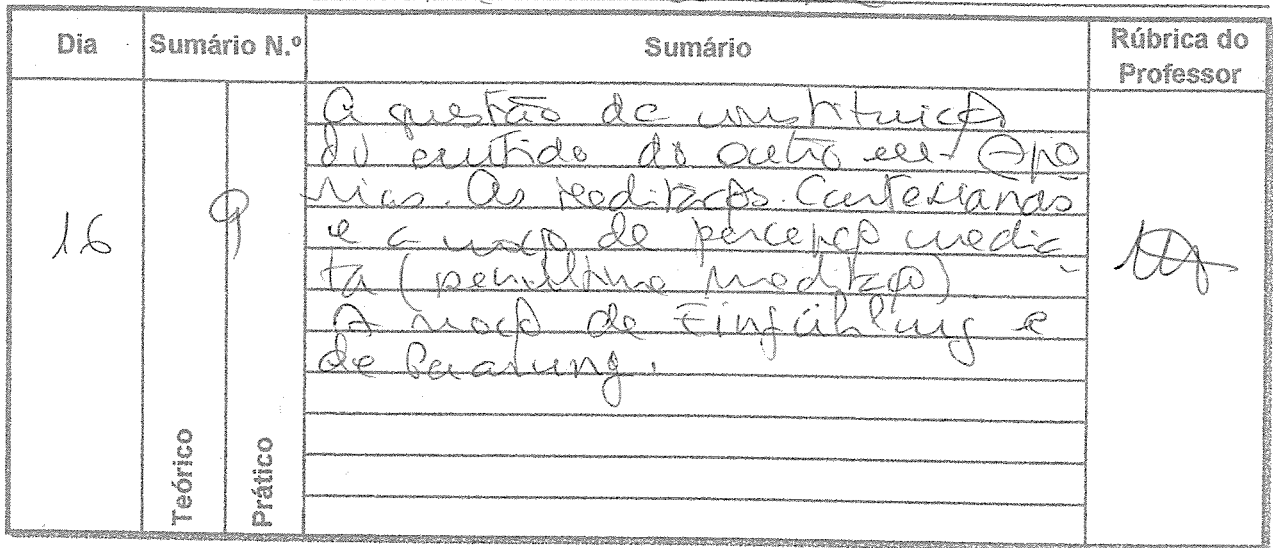 Dia Sumário N.º Sumário Rúbrica do Professor
A questão da constituição
do sentido do outro em Apo
rias. As Meditações Cartesianas
e a noção de percepção media
ta (penúltima meditação)
A noção de Einfühlung e
de Paarung.
16
9
Teórico
Prático